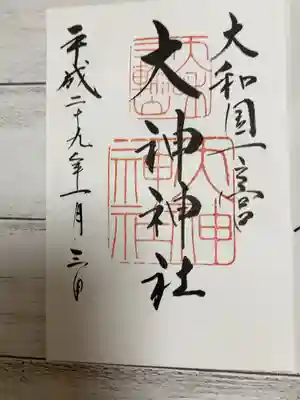 大和国一之宮
大神神社
平成二十九年一月三日
大神神社